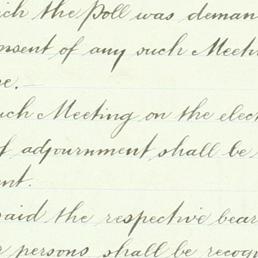 ich the Poll was deman
onsent of any such Meeti
e.
uch Meeting on the elec
f adjournment, shall be
ent.
said the respective bear
r persons shall be recog